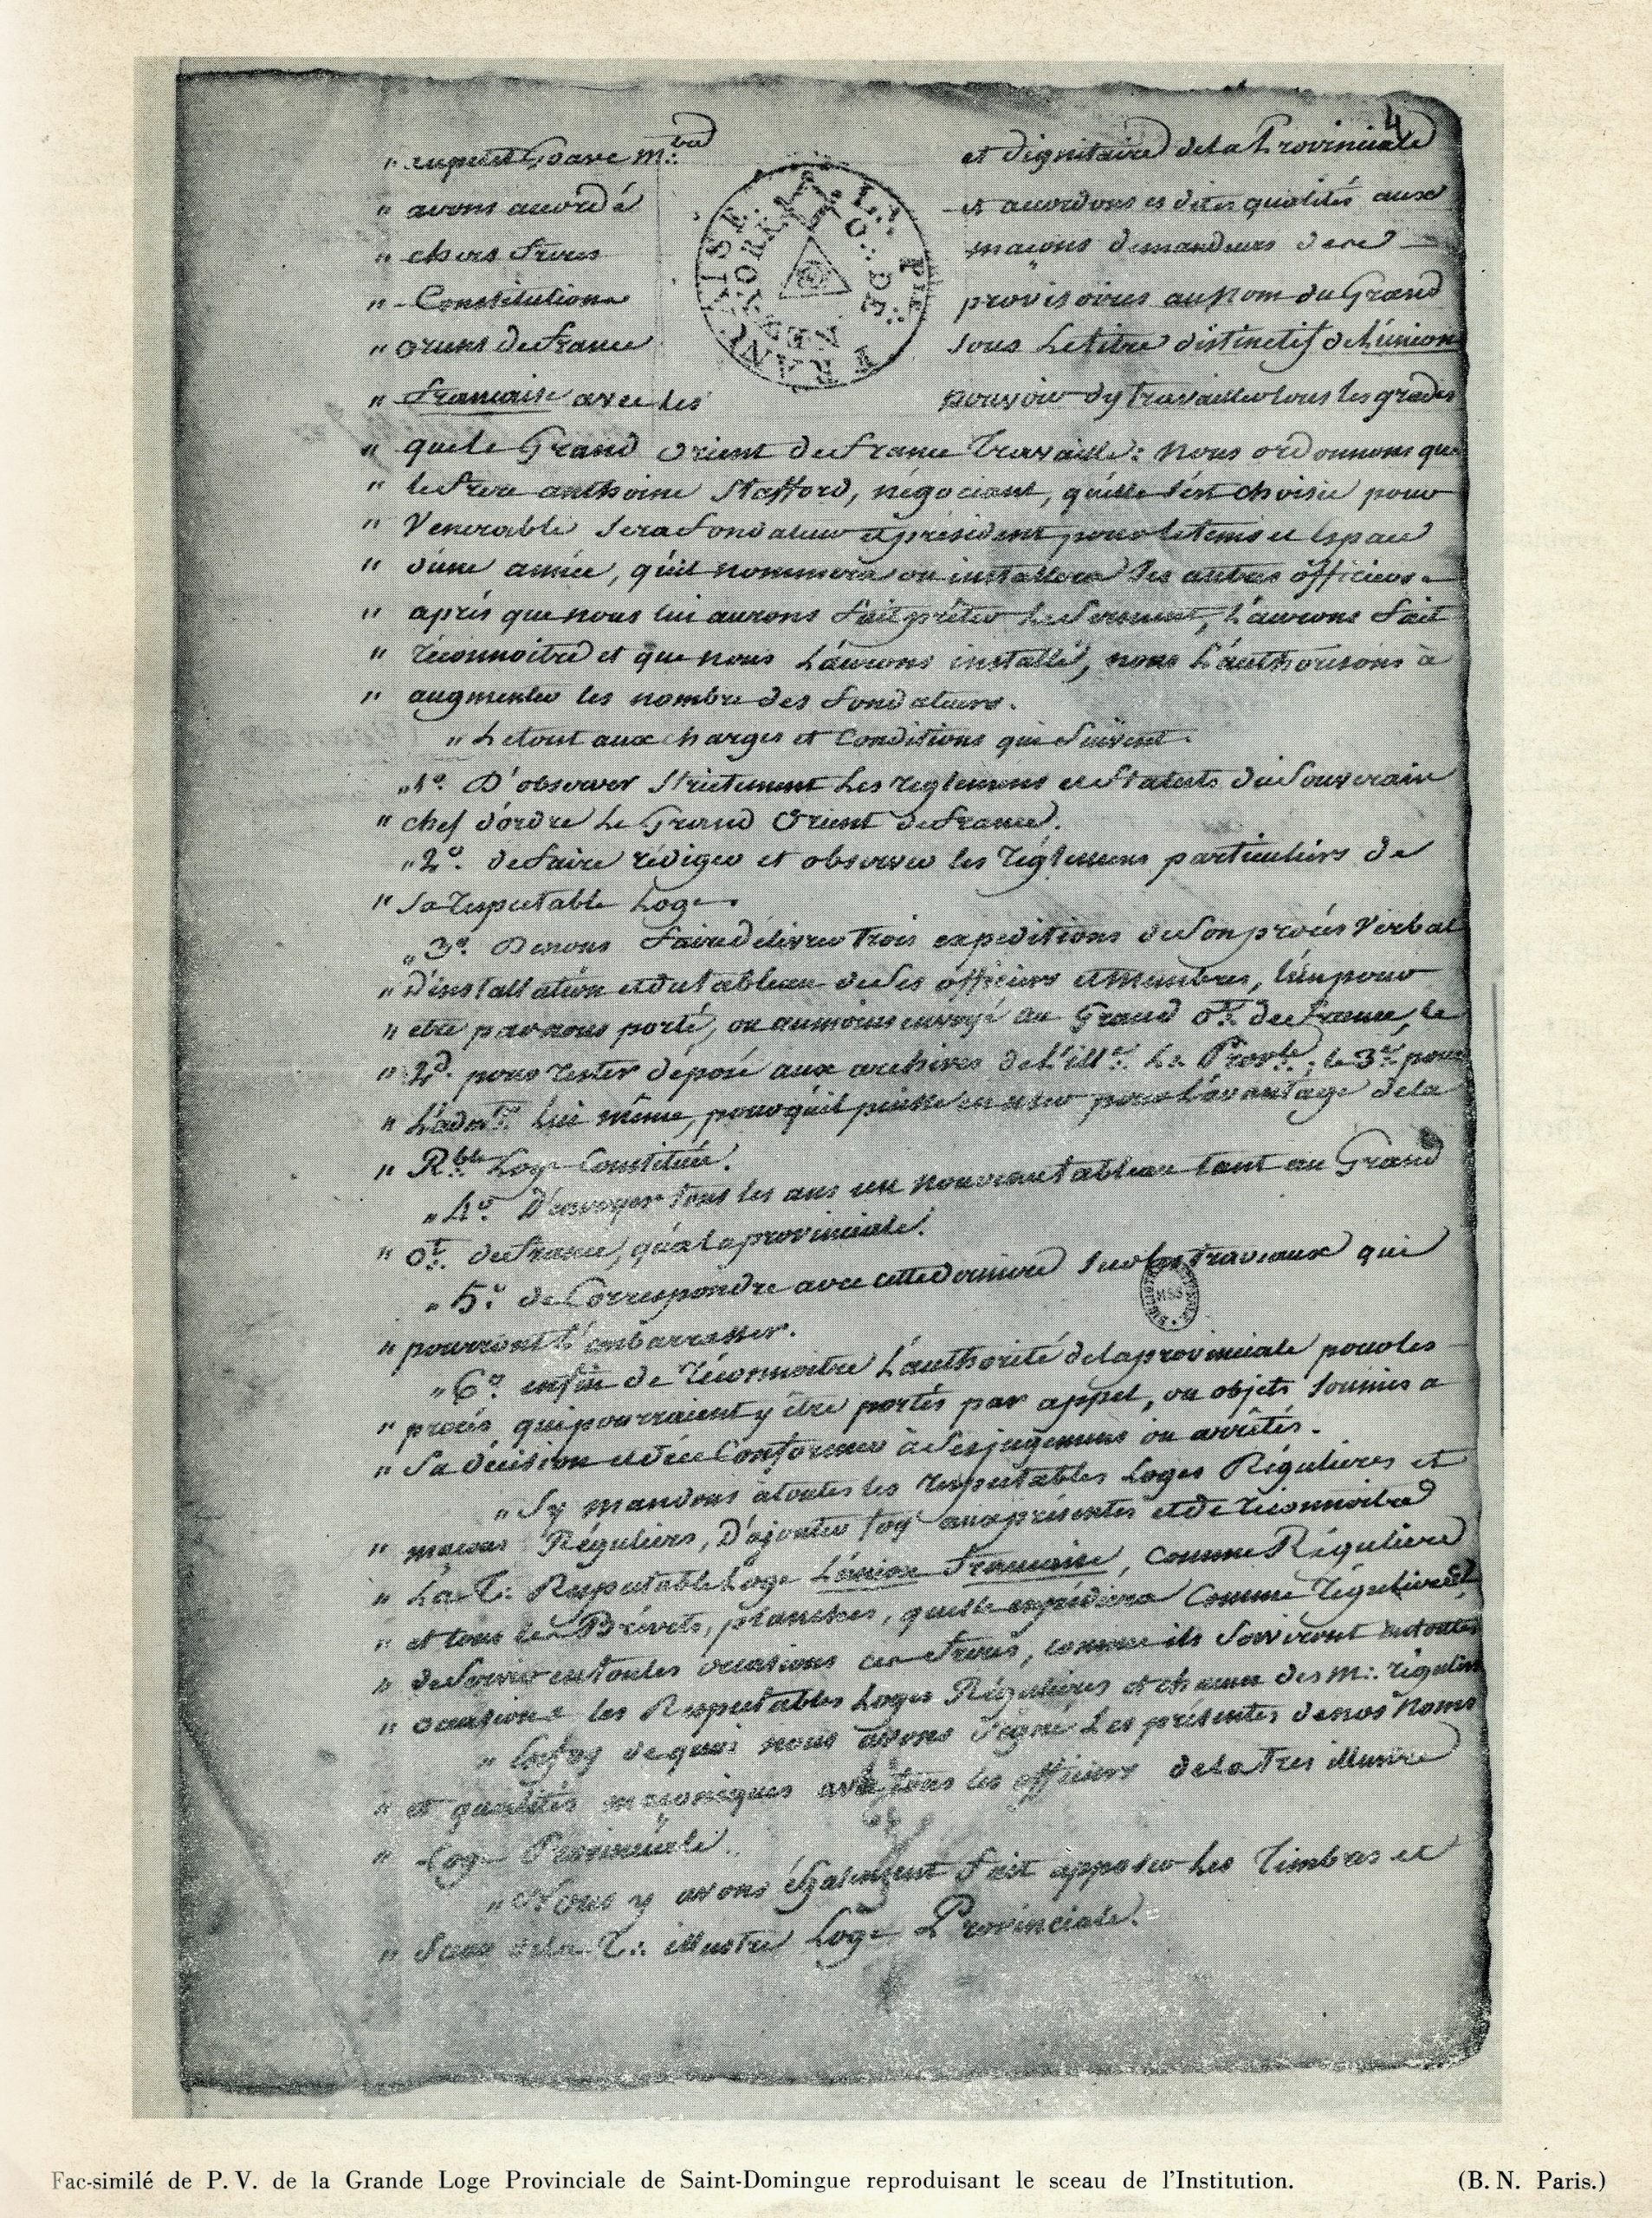 4
" au petit Goave m∴bre et dignitaire de la Provinciale
" avons accordé et accordons es dites qualités aux
" chers freres maçons demandeurs des
" Constitutions provisoires au Nom du Grand
" orient de france sous Le titre distinctif de L'union
" francaise avec les pouvoir d'y travailler tous les grades
L∴ P∴le FRANÇAISE
O∴ DE NEW YORK
" que le Grand Orient de france Travaille: Nous ordonnons que
" le frere anthoine Stafford, négociant, qu'elle s'est choisie pour
" Venerable sera fondateur et président pour le tems et Espace
" d'une année, qu'il nommera ou installera ses autres officiers
" aprés que nous lui aurons fait prêter Le Serment, L'aurons fait
" réconnoitre et que nous L'aurons installé, nous L'authorisons à
" augmenter les nombre des fondateurs.
" Le tout aux charges et Conditions qui Suivent.
" 1º. D'observer Strictement Les reglemens et Statuts du Souverain
" chef d'ordre Le Grand Orient de france.
" 2º. de faire rédiger et observer les réglemens particuliers de
" sa respectable Loge.
" 3º. De nous faire délivrer Trois expeditions de Son procès Verbal
" D'installation et du tableau de Ses officiers et Membres, L'un pour
" etre par nous porté, ou au moins envoyé au Grand Ot∴ de france, le
" 2d. pour rester déposé aux archives de L'ill∴ L∴ Provle∴; le 3e. pour
" Lui même, pour qu'il puisse en user pour L'avantage de la
" Rble∴ Loge Constituée.
" 4º. D'envoyer tous les ans un nouveau tableau tant au Grand
" Ot∴ de france, qu'à la provinciale.
" 5º. de Correspondre avec cette derniere sur les travaux qui
" pourront L'embarrasser.
BIBLIOTHEQUE MSS
" 6º. enfin de réconnoitre L'authorité de la provinciale pour les
" procés qui pourraient y être portés par appel, ou objets soumis a
" Sa décision et de se Conformer à Ses jugemens ou arrêtés.
" Sy mandons à toutes les respectables Loges Régulieres et
" maçons Réguliers, D'ajouter foy aux présentes et de reconnoitre
" La T∴ Respectable Loge L'union francaise, comme Réguliere
" et tous les Brévets, planches, qu'elle expédiera Comme réguliers et
" de Servir en toutes occasions ces freres, comme ils Serviront en toutes
" occasions les Respectables Loges Régulieres et chacun des m∴ réguliers
" En foy de quoi nous avons Signé Les présentes de nos Noms
" et qualités maçoniques avec tous les officiers de la Tres illustre
" Loge Provinciale.
" Nous y avons également fait apposer Les Timbres et
" Sceau de la T∴ illustre Loge Provinciale.
Fac-similé de P. V. de la Grande Loge Provinciale de Saint-Domingue reproduisant le sceau de l'Institution. (B. N. Paris.)